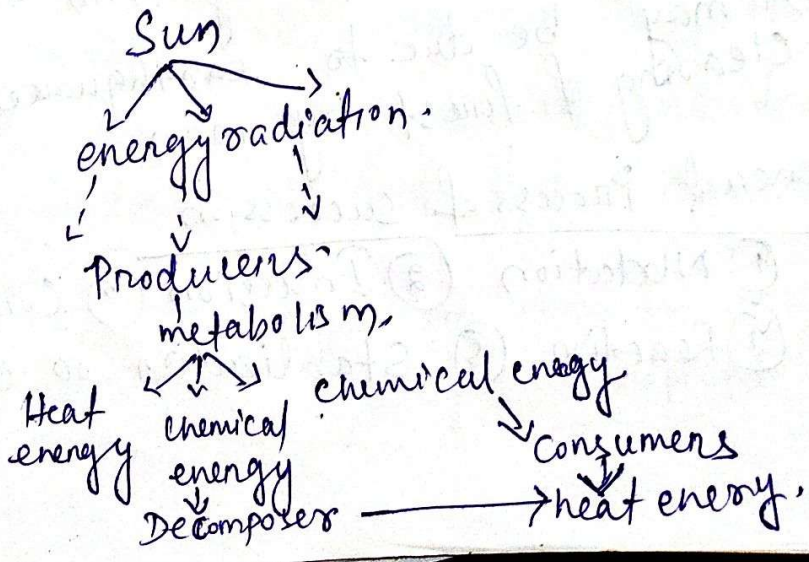 Sun
energy radiation.
Producers
metabolism.
Heat energy
chemical energy
chemical enegy
Consumers
Decomposer
heat enery.
① Nudation ②
③ ④ Stabil